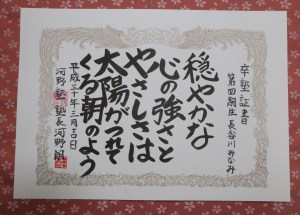 卒塾証書
第四期生 長谷川みなみ
穏やかな
心の強さと
やさしさは
太陽がつれて
くる朝のよう
平成三十年三月吉日
河野塾塾長河野